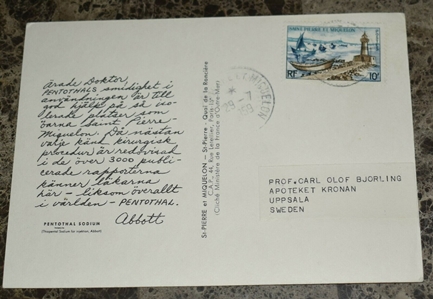 Ärade Doktor
PENTOTHALS smidighet i
användningen är till
god hjälp på så iso-
lerade platser som
öarna Saint Pierre-
Miquelon. Då nästan
varje känd kirurgisk
procedur är redovisad
i de över 3000 publi-
cerade rapporterna
känner läkarna
här - liksom överallt
i världen - PENTOTHAL.
Abbott
PENTOTHAL SODIUM
(Thiopental Sodium for Injection, Abbott)
ST-PIERRE et MIQUELON — St-Pierre - Quai de la Roncière
(Cliché Ministère de la France d'Outre-Mer)
SAINT-PIERRE ET MIQUELON
RF
10F
ST-MIQUELON
29-7
PROF. CARL OLOF BJORLING
APOTEKET KRONAN
UPPSALA
SWEDEN